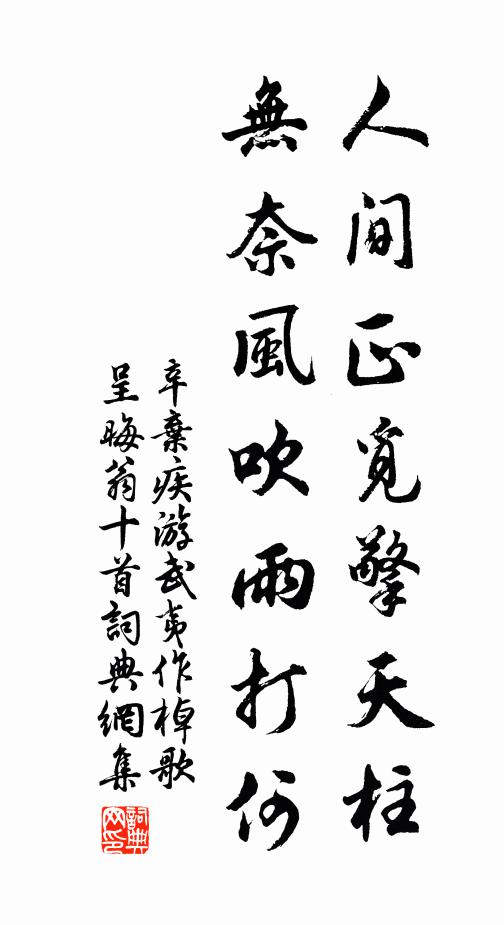 人间正覓擎天柱
無奈風吹雨打何
辛棄疾游武夷作棹歌
呈晦翁十首詞典網集
詞典
网印